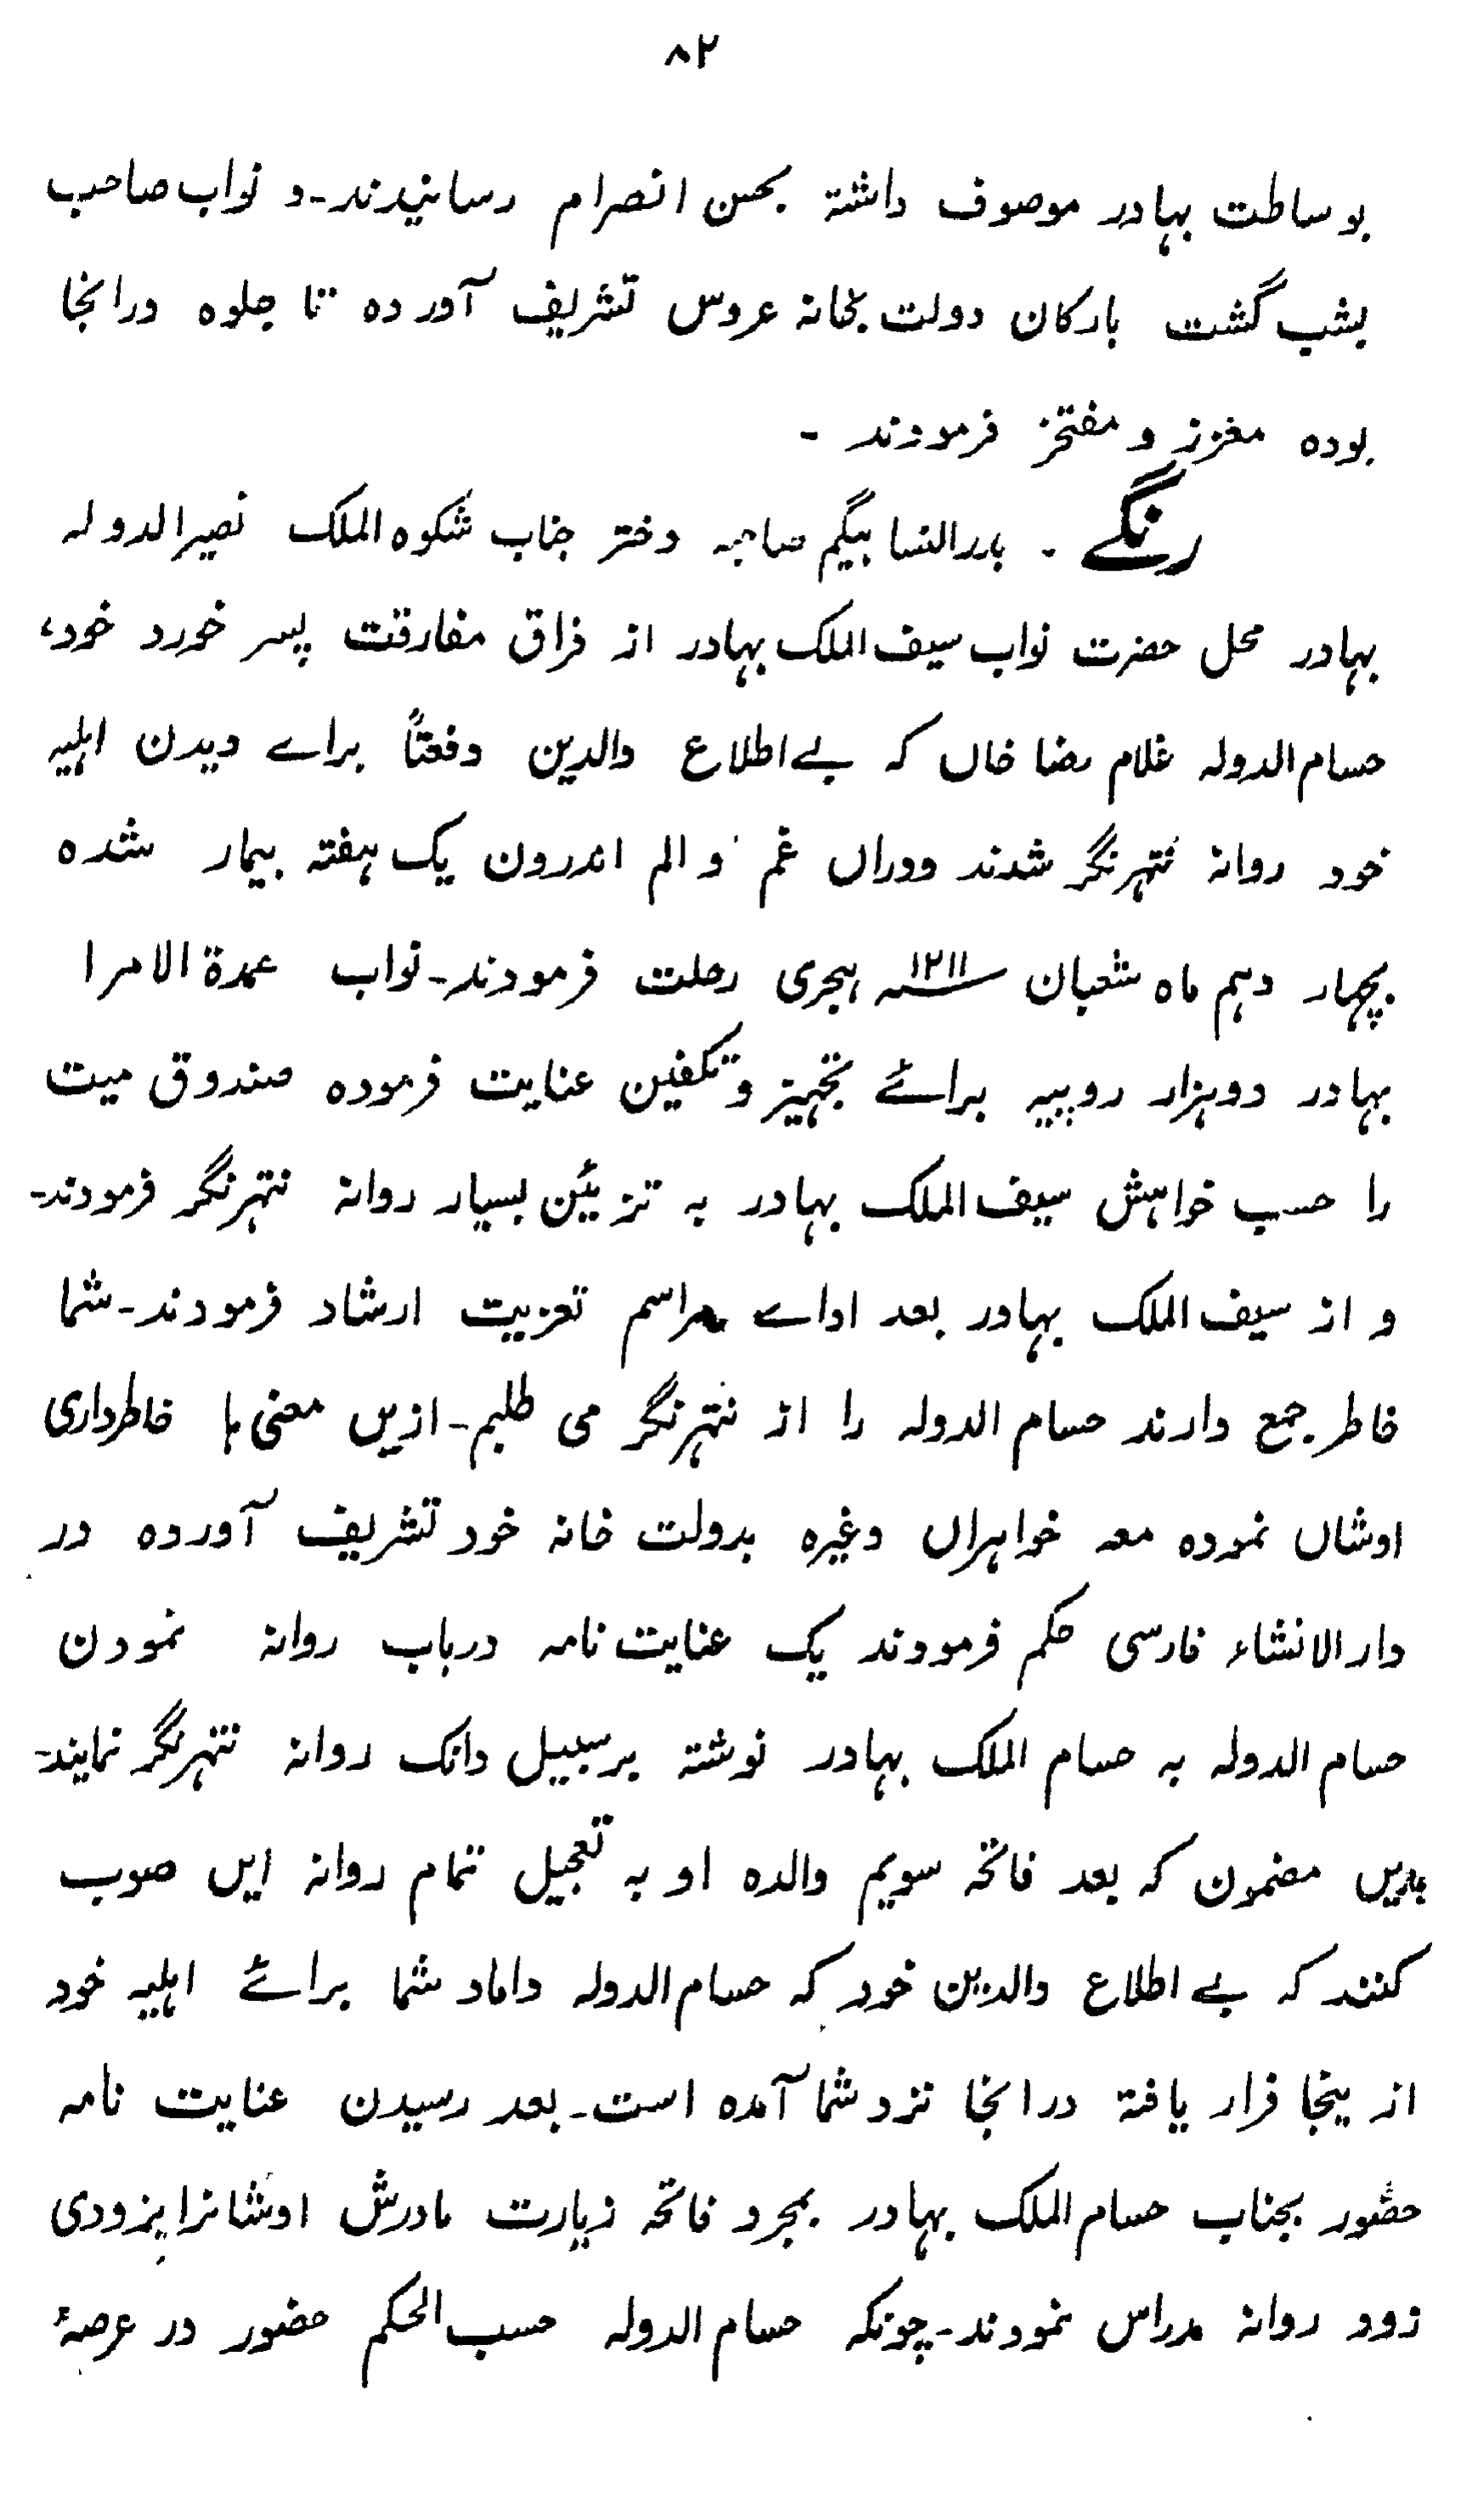 ۸۲
بوساطت بہادر موصوف داشتہ بحسن انصرام رسانیدند۔ و نواب صاحب
بشب گشت بارکان دولت بخانہ عروس تشریف آوردہ تا جلوہ درانجا
بودہ معزز و مفتخر فرمودند ۔
رنگے ۔ بدرالنسا بیگم صاحبہ دختر جناب شکوہ الملک نصیرالدولہ
بہادر محل حضرت نواب سیف الملک بہادر از فراق مفارقت پسر خورد خود،
حسام الدولہ غلام رضا خاں کہ بے اطلاع والدین دفعتاً براے دیدن اہلیہ
خود روانہ نتہرنگر شدند ودراں غم و الم اندرون یک ہفتہ بیمار شدہ
بچہار دہم ماہ شعبان سنہ ۱۲۱۱ ہجری رحلت فرمودند۔ نواب عمدۃ الامرا
بہادر دوہزار روپیہ برائے تجہیز و تکفین عنایت فرمودہ صندوق میت
را حسب خواہش سیف الملک بہادر بہ تزئین بسیار روانہ نتہرنگر فرمودند۔
و از سیف الملک بہادر بعد اداے مراسم تعزیت ارشاد فرمودند۔ شما
خاطر جمع دارند حسام الدولہ را از نتہرنگر می طلبم۔ ازیں معنی ہا خاطرداری
اوشاں نمودہ معہ خواہراں وغیرہ بدولت خانہ خود تشریف آوردہ در
دارالانشاء فارسی حکم فرمودند یک عنایت نامہ درباب روانہ نمودن
حسام الدولہ بہ حسام الملک بہادر نوشتہ برسبیل دانک روانہ نتہرنگر نمایند۔
بدیں مضمون کہ بعد فاتحہ سویم والدہ او بہ تعجیل تمام روانہ ایں صوب
کنند کہ بے اطلاع والدین خود کہ حسام الدولہ داماد شما برائے اہلیہ خود
از ینجا فرار یافتہ درانجا نزد شما آمدہ است۔ بعد رسیدن عنایت نامہ
حضور بجناب حسام الملک بہادر بمجرد فاتحہ زیارت مادرش اوشانرا بزودی
زود روانہ مدراس نمودند۔ چونکہ حسام الدولہ حسب الحکم حضور در عرصۂ